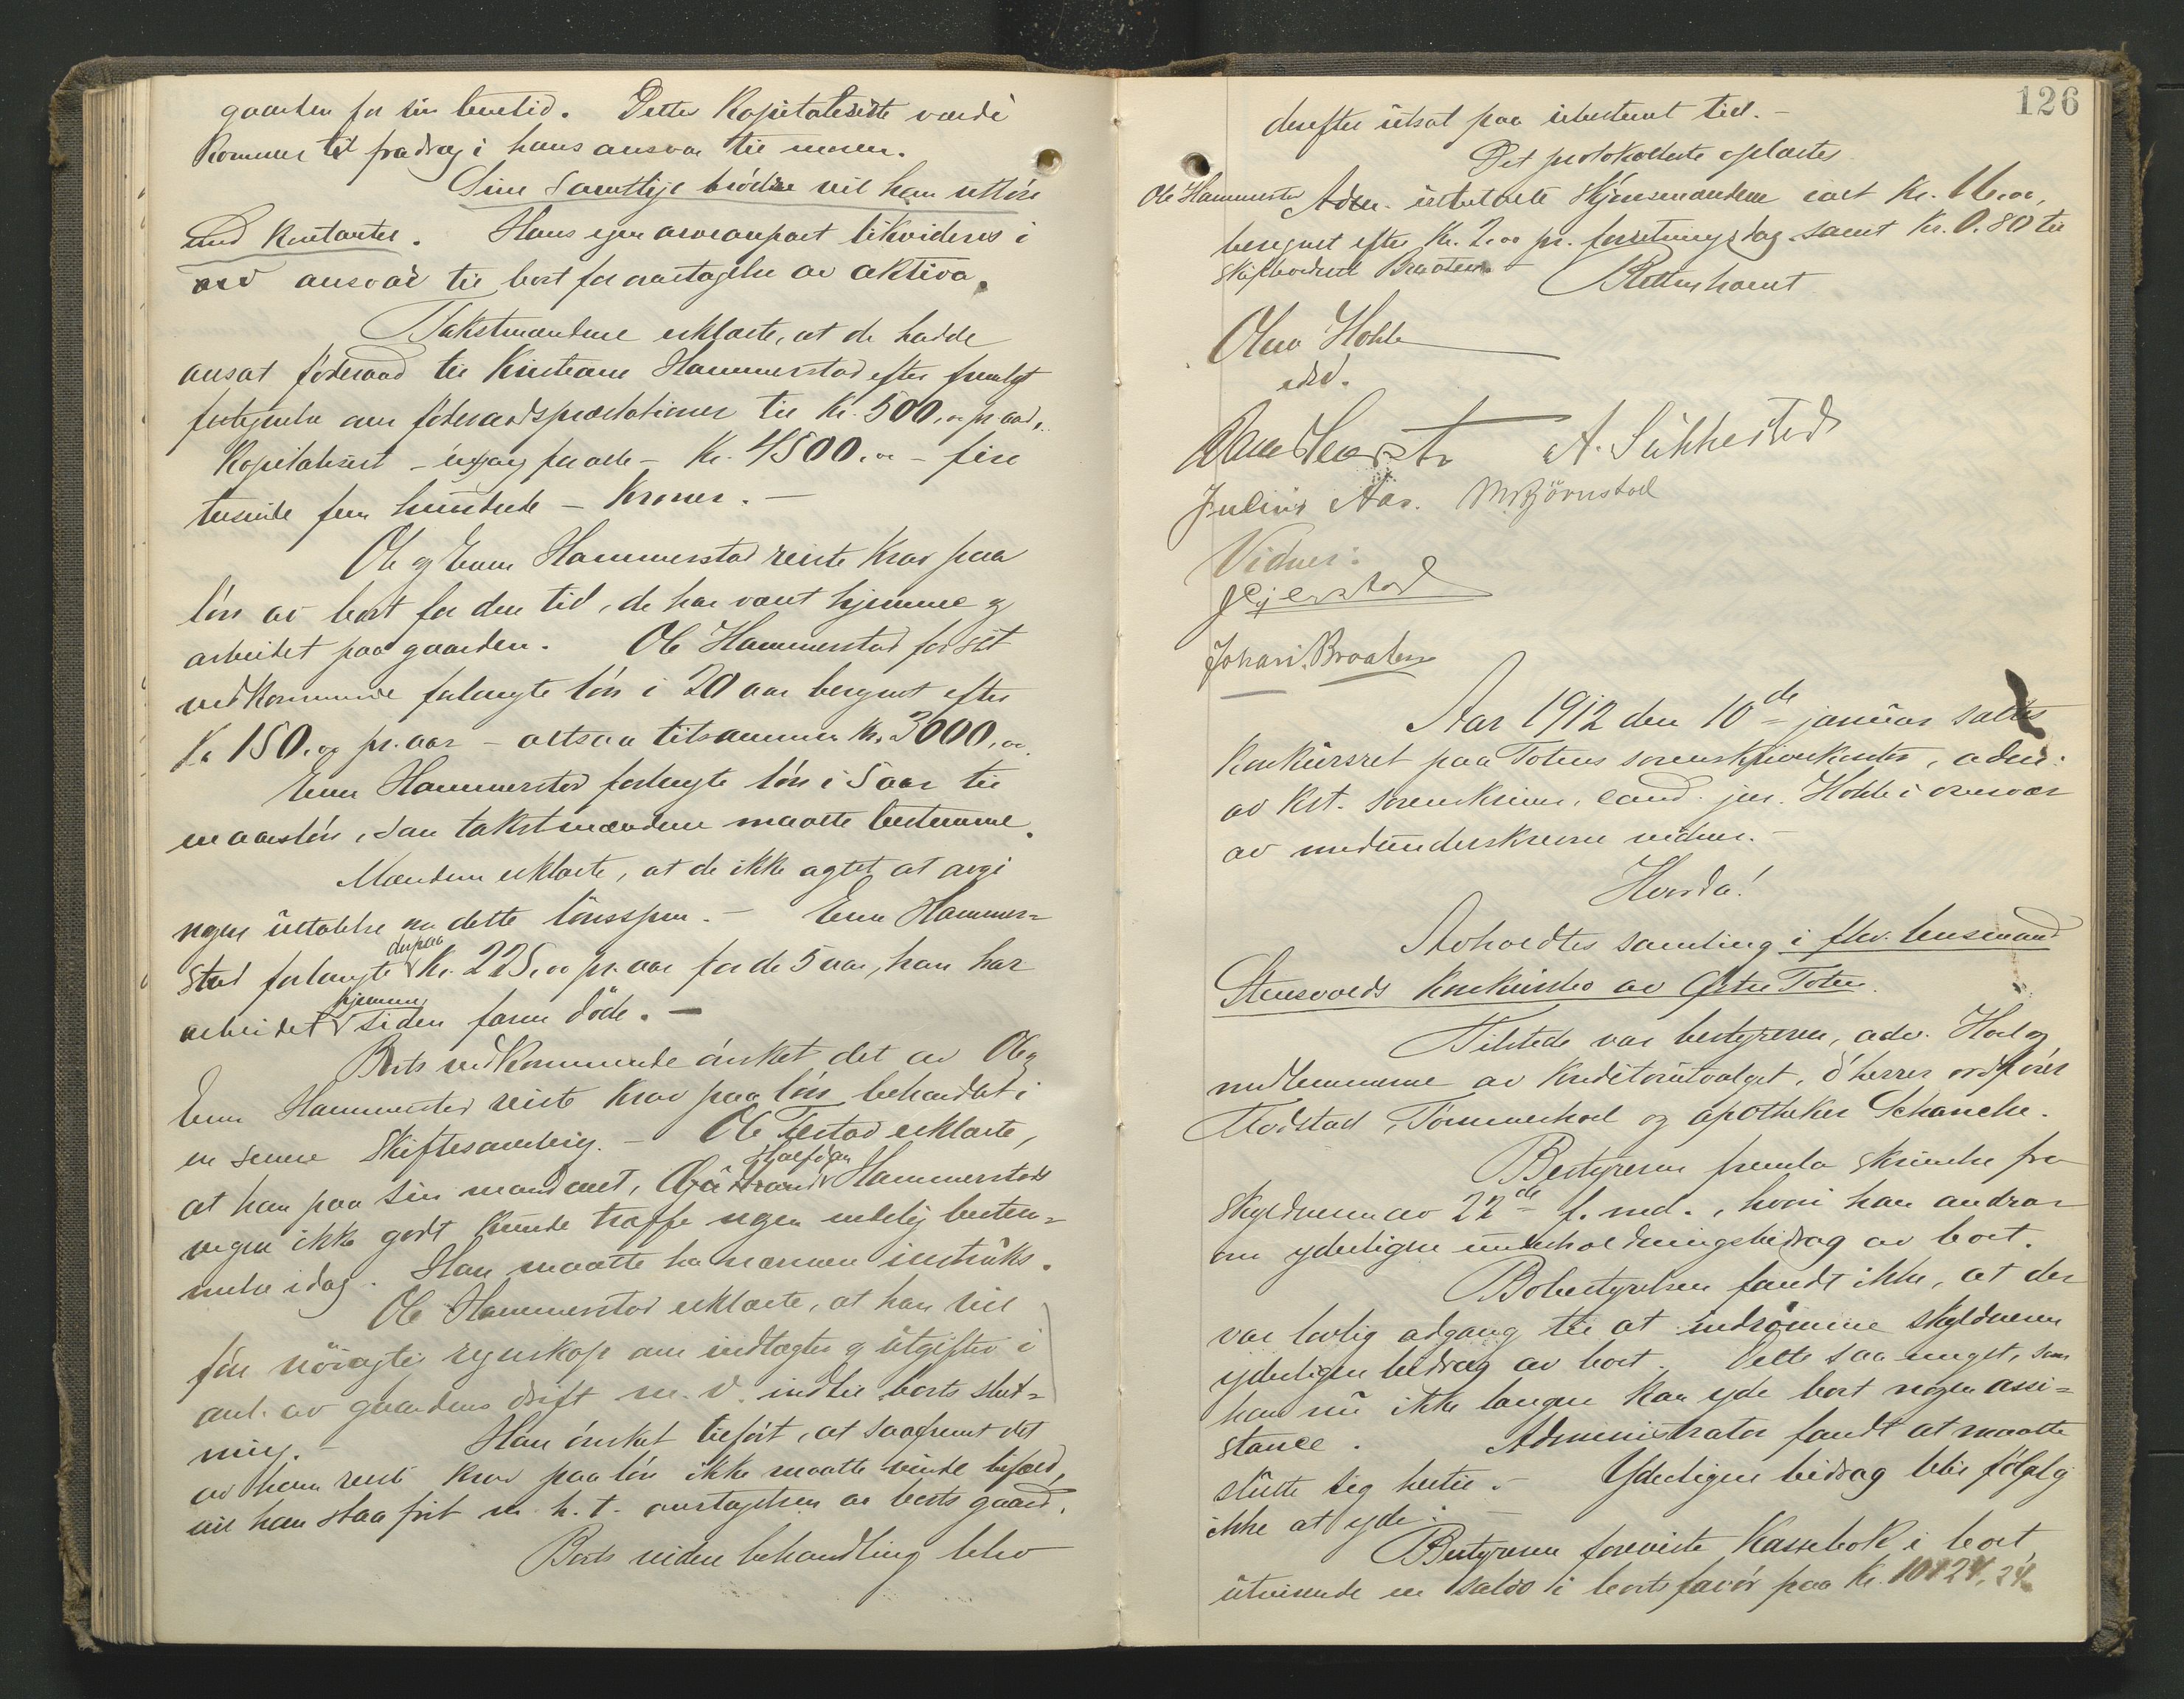 gaarden for sin levetid. Dette kapitaliserte værdi
kommer til fradrag i hans ansvar til massen.
Sine samtlige brødre vil han utløse
med kontanter. Hans egen arveanpart likvideres i
ansvar til boet for overtagelse av aktiva.
Takstmændene erklærte, at de hadde
ansat föderaad til Kristiane Hammerstad efter fremlagt
fortegnelse om föderaadspræstationer til Kr. 500,00 pr. aar,
kapitalisert - en gang for alle - Kr. 4500,00 - fire
tusinde fem hundrede - Kroner. -
Ole og Even Hammerstad reiste krav paa
lön av boet for den tid, de har været hjemme og
arbeidet paa gaarden. Ole Hammerstad for sit
vedkommende forlangte lön i 20 aar beregnet efter
Kr 150,00 pr. aar - altsaa tilsammen Kr. 3000,00
Even Hammerstad forlangte lön i 5 aar til
en aarslön, som takstmændene maatte bestemme.
Mændene erklærte, at de ikke agtet at avgi
nogen uttalelse om dette lönsspm. - Even Hammer=
stad forlangte derpaa Kr. 225,00 pr. aar for de 5 aar, han har
arbeidet hjemme siden faren döde. -
Boets vedkommende önsket det av Ole og
Even Hammerstad reiste krav paa lön behandlet i
en senere skiftesamling. - Ole Festad erklærte,
at han paa sin mandant, Halfdan Hammerstads
vegne ikke godt kunde træffe nogen endelig bestem=
melse idag. Han maatte ha nærmere instruks.
Ole Hammerstad erklærte, at han vil
före nöiagtig regnskap om indtægter og utgifter i
anl. av gaardens drift m. v. indtil boets slut=
ning. - Han önsket tilfört, at saafremt det
av ham reiste krav paa lön ikke maatte vinde bifald,
vil han staa frit m. h. t. overtagelsen av boets gaard.
Boets videre behandling blev
126
derefter utsat paa ubestemt tid. -
Det protokollerte oplæstes
Ole Hammerstad Adm. utbetalte skjönsmændene ialt Kr. 16,00,
beregnet efter Kr. 2,00 pr. forretningsdag samt Kr. 0.80 til
Braaten. - Retten hævet
Olav Hohle
edsv.
A. Sukkestad
Julius Aas. M Björnstad
Vidner:
Gjerstad
Johan Braaten
Aar 1912 den 10de januar sattes
konkursret paa Totens sorenskriverkontor, adm.
av kst. sorenskriver, cand. jur. Hohle i overvær
av medunderskrevne vidner. -
Hvorda!
Avholdtes samling i fhv. lensmand
Stensvolds konkursbo av Östre Toten.
Tilstede var bestyreren, adv. Hoel og
medlemmerne av kreditorutvalget, d'herrer ordförer
Modstad, Tömmerhoel og apotheker Schanche.
Bestyreren fremla skrivelse fra
skyldneren av 22de f. md., hvori han androar
om yderligere underholdningsbidrag av boet.
Bobestyrelsen fandt ikke, at der
var lovlig adgang til at indrömme skyldneren
yderligere bidrag av boet. Dette saa meget, som
han nu ikke længer kan yde boet nogen assi=
stance. Administrator fandt at maatte
slutte sig hertil. - Yderligere bidrag blir fölgelig
ikke at yde. -
Bestyreren foreviste kassebok i boet,
utvisende en saldo i boets favör paa Kr. 10124,24.